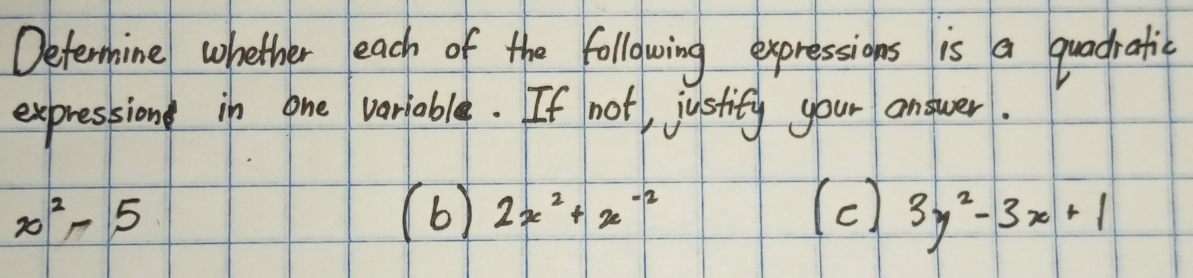 Determine whether each of the following expressions is a quadratic
expression in one variable. If not, justify your answer.
x² - 5 (b) 2x² + x⁻² (c) 3y² - 3x + 1